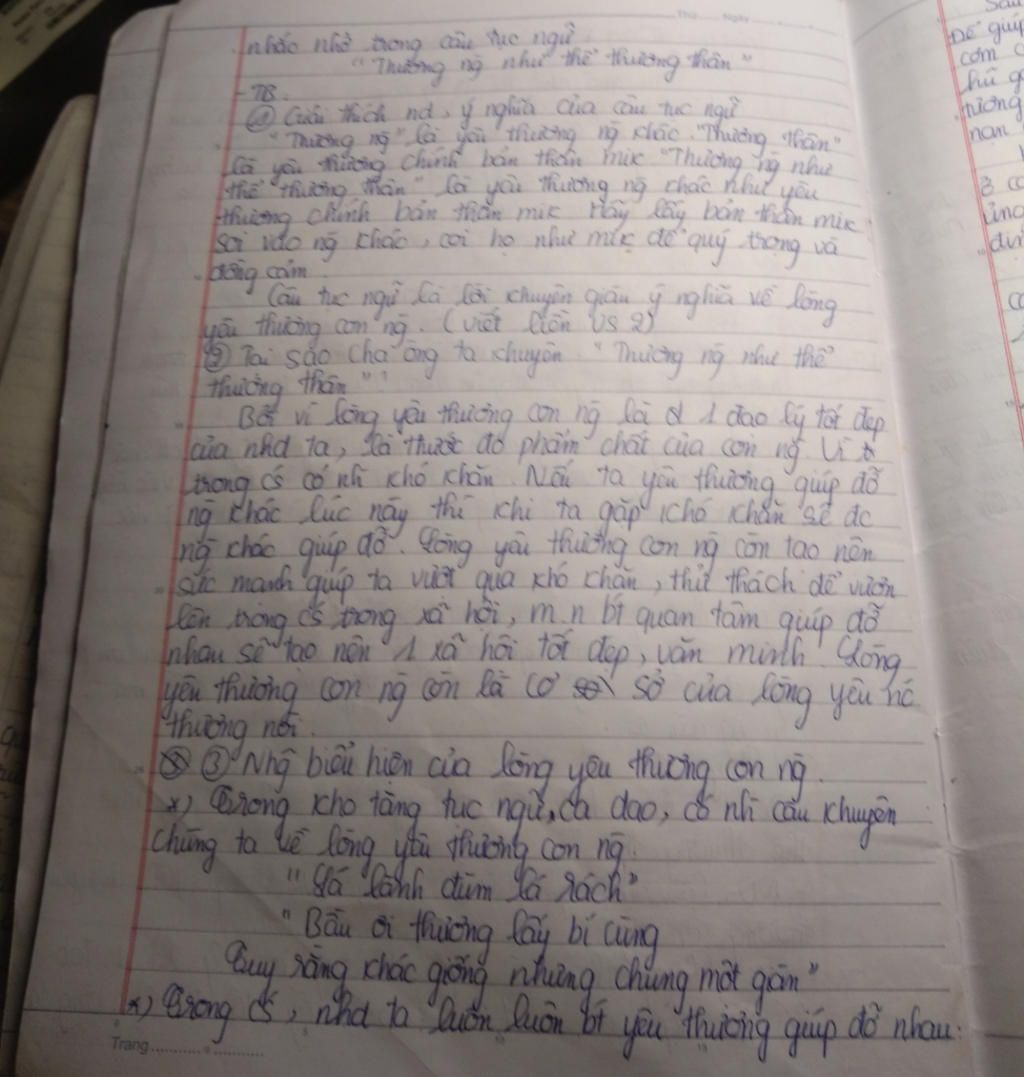 Thứ ..... Ngày .....
nhắc nhở trong câu tục ngữ
"Thương ng̃ như thể thương thân"
- TB.
① Giải thích nd, ý nghĩa của câu tục ngữ
"Thương ng̃" là yêu thương ng̃ khác. "Thương thân"
là yêu thương chính bản thân mìk "Thương ng̃ như
thể thương thân" là yêu thương ng̃ khác như yêu
thương chính bản thân mìk Hãy lấy bản thân mìk
soi vào ng̃ khác, coi họ như mìk để quý trọng và
đồng cảm.
Câu tục ngữ là lời khuyên giàu ý nghĩa về lòng
yêu thương con ng̃. (viết liền vs 2)
② Tại sao cha ông ta khuyên "Thương ng̃ như thể
thương thân"?
Bởi vì lòng yêu thương con ng̃ là 1 đạo lý tốt đẹp
của nhd ta, là thước đo phẩm chất của con ng̃. Vì
trong cs có nh̀ khó khăn. Nếu ta yêu thương giúp đỡ
ng̃ khác lúc này thì khi ta gặp khó khăn sẽ đc
ng̃ khác giúp đỡ. Lòng yêu thương con ng̃ còn tạo nên
sức mạnh giúp ta vượt qua khó khăn, thử thách để vươn
lên trong cs trong xã hội, m.n bt quan tâm giúp đỡ
nhau sẽ tạo nên 1 xã hội tốt đẹp, văn minh. Lòng
yêu thương con ng̃ còn là cơ sở của lòng yêu nc
thương nòi.
③ Nhg̃ biểu hiện của lòng yêu thương con ng̃.
*) Trong kho tàng tục ngữ, ca dao, có nh̀ câu khuyên
chúng ta về lòng yêu thương con ng̃:
"Lá lành đùm lá rách"
"Bầu ơi thương lấy bí cùng
Tuy rằng khác giống nhưng chung một gàn"
*) Trong cs, nhd ta luôn luôn bt yêu thương giúp đỡ nhau:
Trang ...............